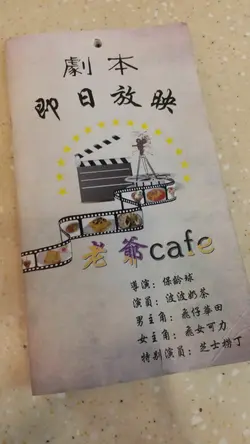 劇本
即日放映
老爺cafe
導演：保齡球
演員：波波奶茶
男主角：飛仔華田
女主角：飛女可力
特別演員：芝士楷丁